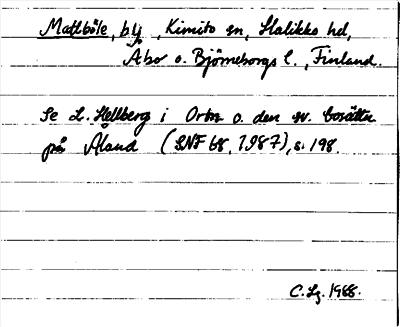 Mattböle, by, Kimito sn, Halikko hd,
Åbo o. Björneborgs l., Finland.
Se L. Hellberg i Ortn o. den sv. bosättn
på Åland (SNF 68, 1987), s. 198.
C. Lg. 1988.